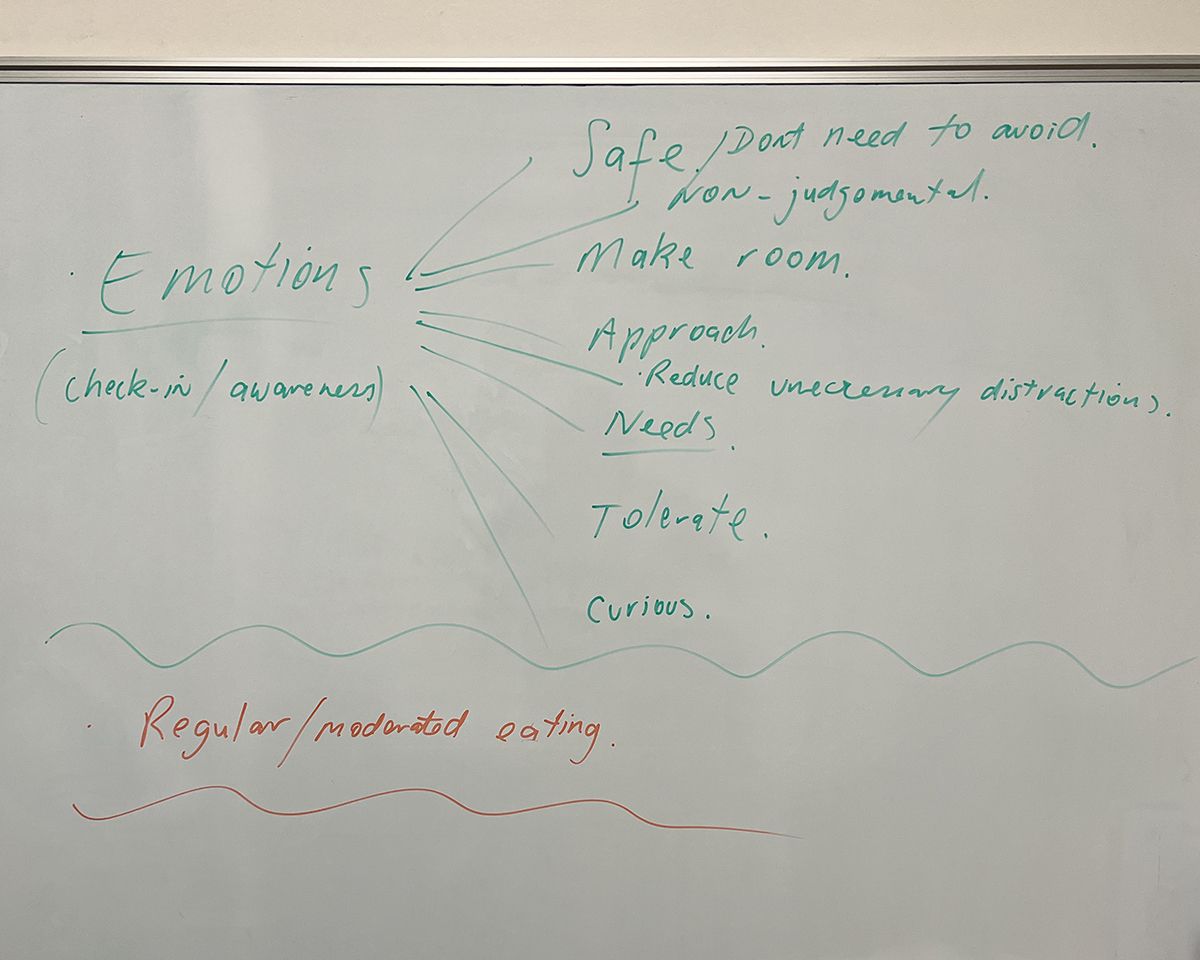 Safe / Dont need to avoid.
Non-judgomental.
· Emotions
Make room.
(check-in / awareness)
Approach.
· Reduce unecessary distractions.
Needs.
Tolerate.
Curious.
· Regular/moderated eating.